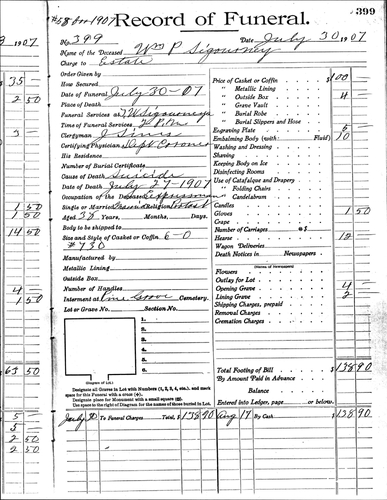 #68 for 1907
Record of Funeral.
399
No. 399
Date July 30 1907
Name of the Deceased Wm P Sigourney
Charge to Estate
Order Given by
How Secured
Date of Funeral July 30-07
Place of Death
Funeral Services at
Time of Funeral Services 2 P.M.
Clergyman J Sims
Certifying Physician Coroner
His Residence
Number of Burial Certificate
Cause of Death Suicide
Date of Death July 27-1907
Occupation of the Deceased Expressman
Single or Married Religion
Age 38 Years, Months, Days.
Body to be shipped to
Size and Style of Casket or Coffin 6-0
#730
Manufactured by
Metallic Lining
Outside Box
Number of Handles
Interment at Pine Grove Cemetery.
Lot or Grave No. Section No.
1.
2.
3.
4.
5.
6.
(Diagram of Lot.)
Designate all Graves in Lot with Numbers (1, 2, 3, 4, etc.), and mark
space for this Funeral with a cross (+).
Designate place for Monument with a small square
Use space to the right of Diagram for the names of those buried in Lot.
Price of Casket or Coffin $100
" Metallic Lining
" Outside Box 4
" Grave Vault
" Burial Robe
" Burial Slippers and Hose
Engraving Plate
Embalming Body (with Fluid) 10
Washing and Dressing
Shaving
Keeping Body on Ice
Disinfecting Rooms
Use of Catafalque and Drapery
" Folding Chairs
" Candelabrum
Candles
Gloves 1 50
Crape
Number of Carriages @ $
Hearse 12
Wagon Deliveries
Death Notices in Newspapers
(Names of Newspapers)
Flowers
Outlay for Lot
Opening Grave 4
Lining Grave 2
Shipping Charges, prepaid
Removal Charges
Cremation Charges
Total Footing of Bill $138 90
By Amount Paid in Advance
Balance
Entered into Ledger, page or below.
July 30 To Funeral Charges Total, $138 90 Aug 17 By Cash $138 90
1907
35
2 50
3
1 50
1 50
14 50
4
1 50
63 50
5
5
2 50
2 50